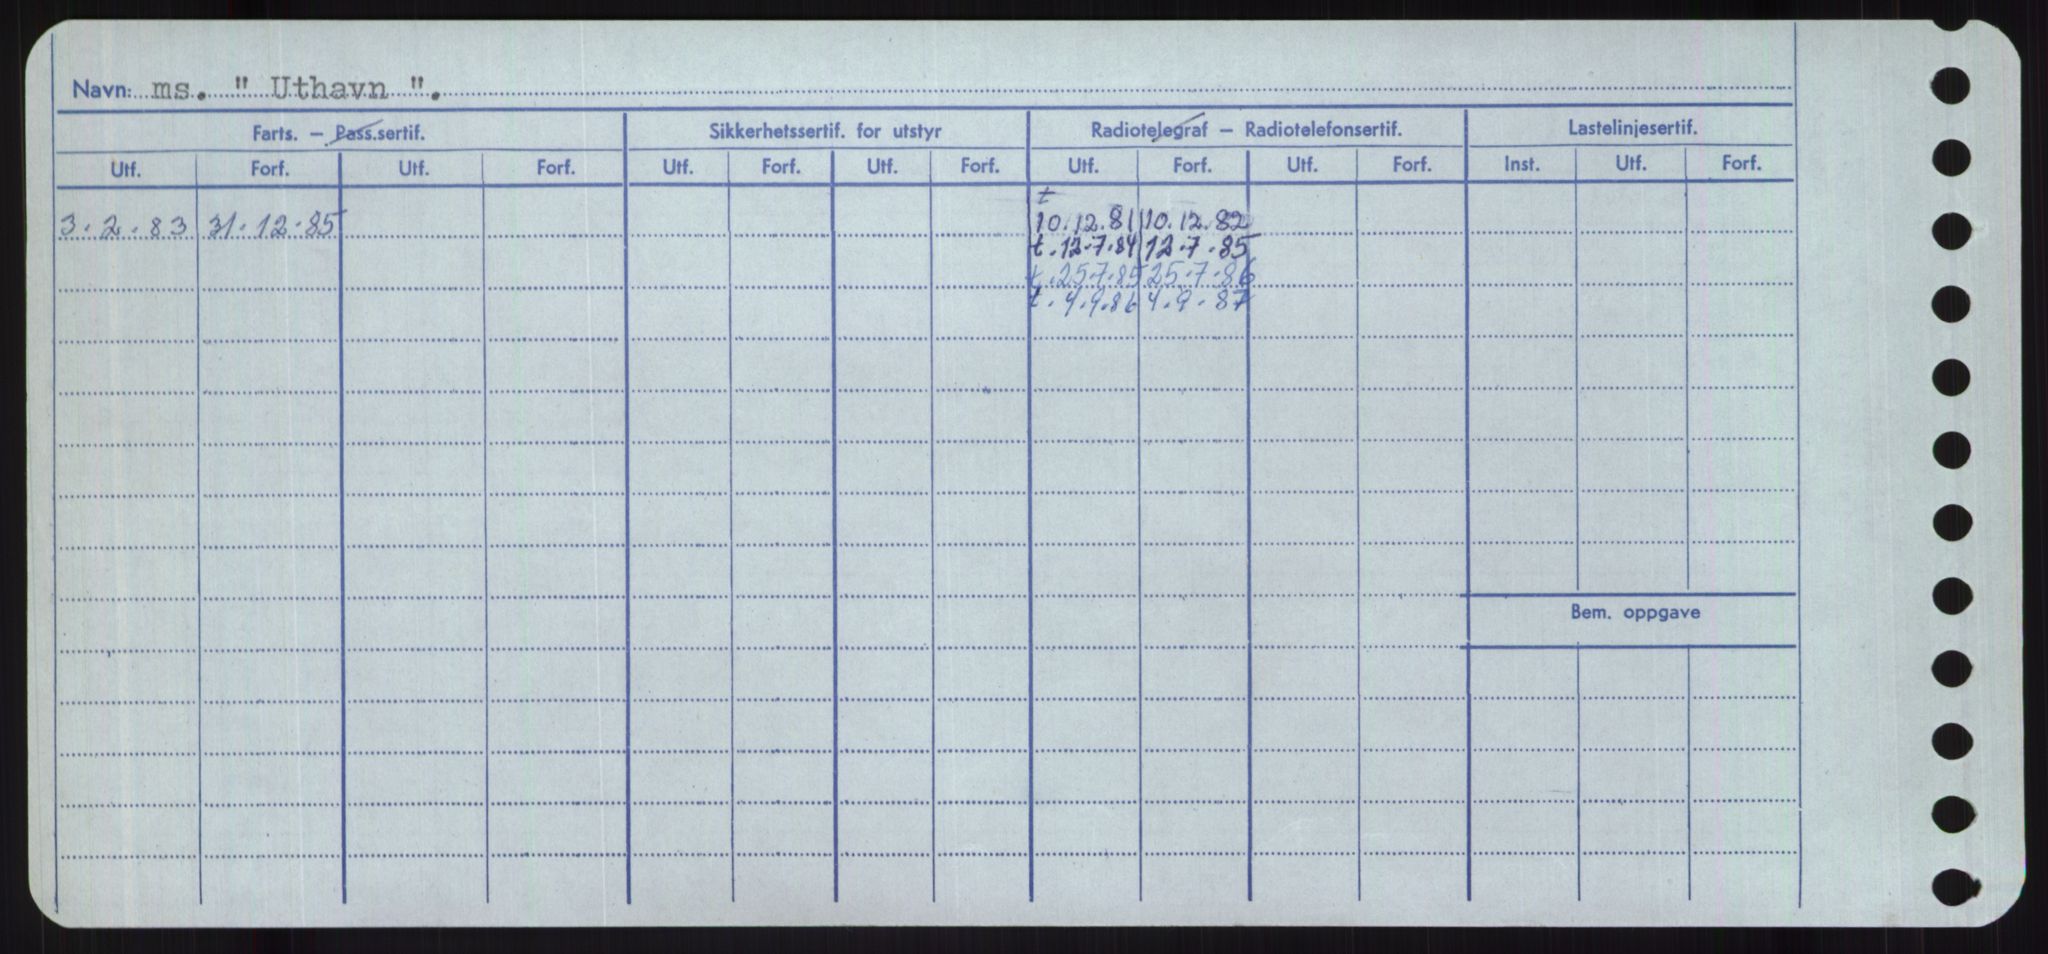 Navn: ms. " Uthavn ".
Farts. — Pass.sertif. Sikkerhetssertif. for utstyr Radiotelegraf — Radiotelefonsertif. Lastelinjesertif.
Utf. Forf. Utf. Forf. Utf. Forf. Utf. Forf. Utf. Forf. Utf. Forf. Inst. Utf. Forf.
t
3.2.83 31.12.85 10.12.81 10.12.82
t.12.7.84 12.7.85
t.25.7.85 25.7.86
t.4.9.86 4.9.87
Bem. oppgave